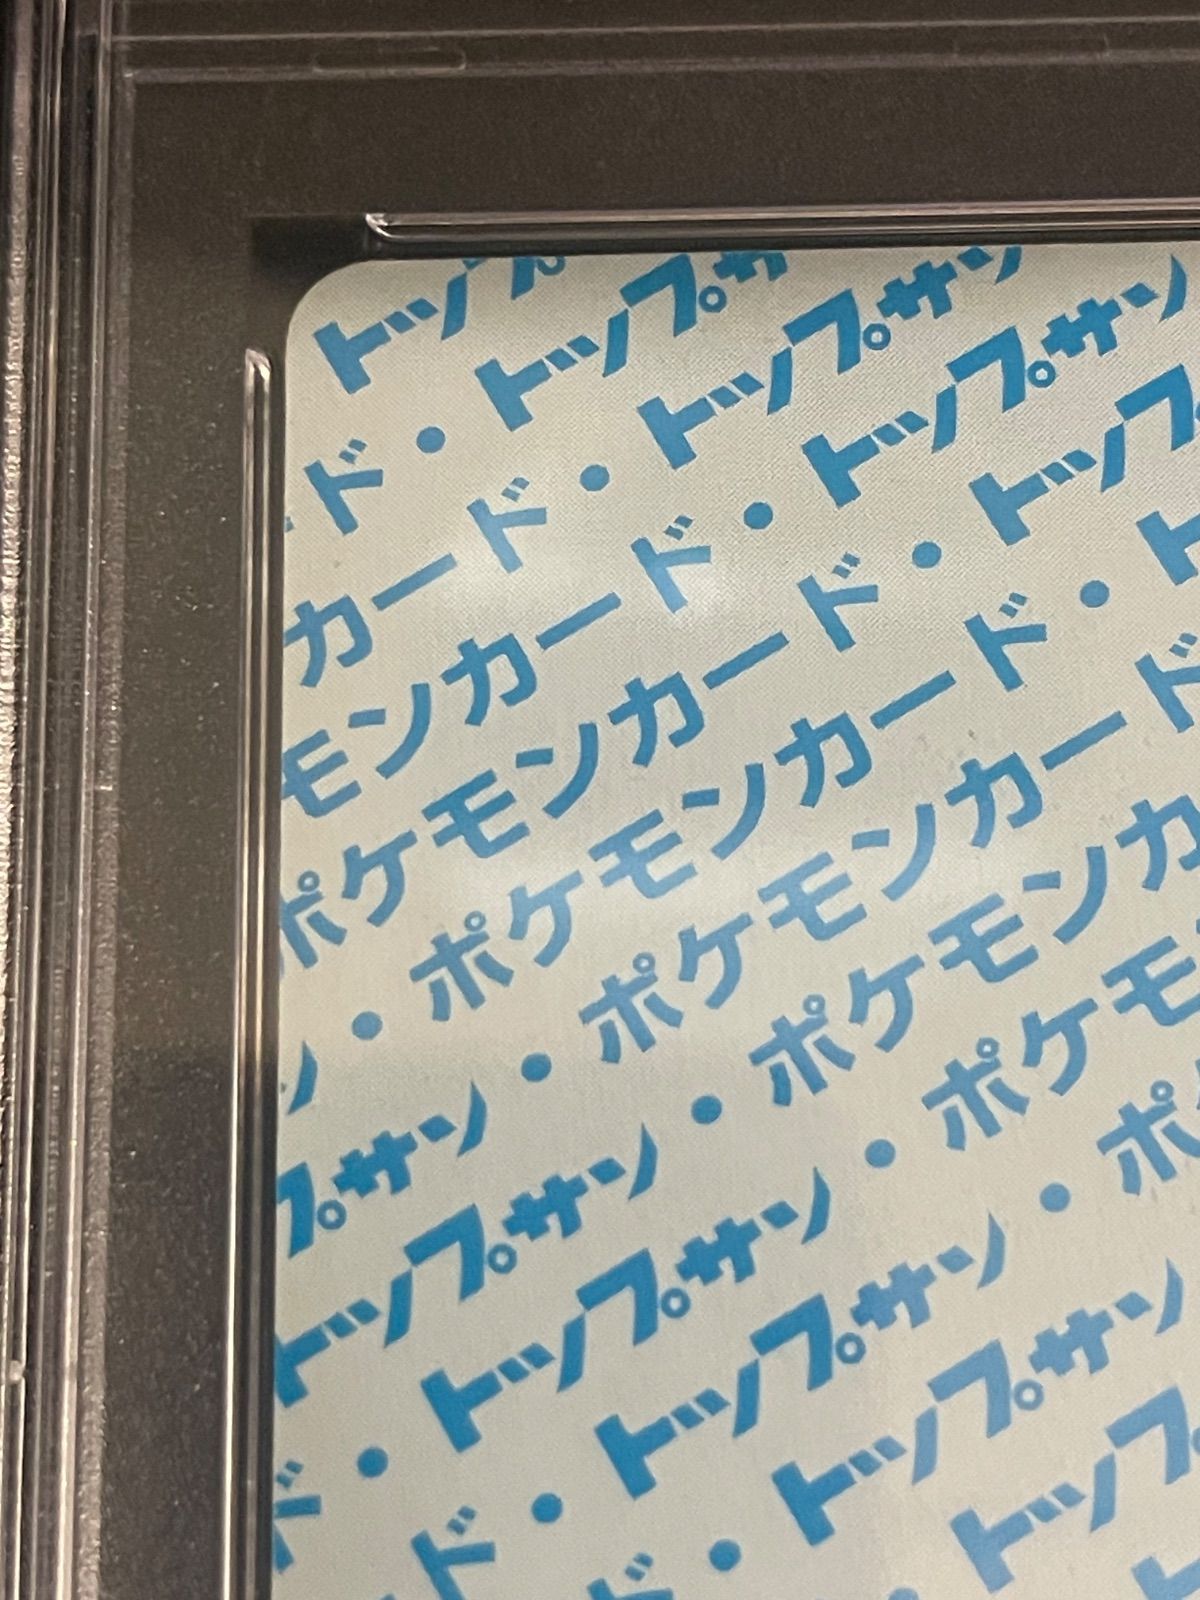 トップ
ド・トップサ
カード・トップサン
モンカード・トップサン
ポケモンカード・トップ
ン・ポケモンカード・ト
プサン・ポケモンカード
トップサン・ポケモンカ
ド・トップサン・ポケモ
ド・トップサン・ポ
ド・トップサン
・トップ
ト